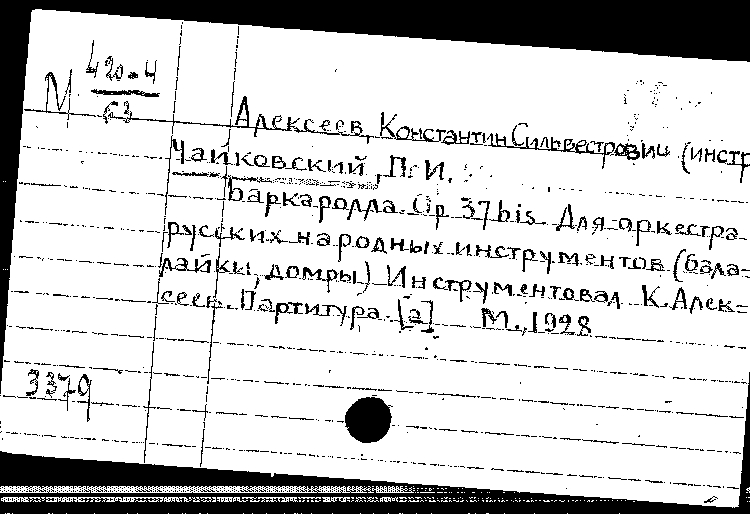 М 420-4
63
Алексеев, Константин Сильвестрович (инстр
Чайковский, П. И.
Баркаролла. Op 37bis. Для оркестра
русских народных инструментов (бала=
лайки, домры) Инструментовал К. Алек=
сеев. Партитура. [а] М., 1928
3379